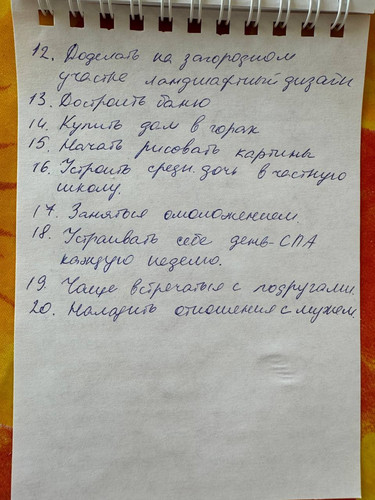 12. Доделать на загородном
участке ландшафтный дизайн
13. Достроить баню
14. Купить дом в горах
15. Начать рисовать картины
16. Устроить средн. дочь в частную
школу.
17. Заняться омоложением.
18. Устраивать себе день-СПА
каждую неделю.
19. Чаще встречаться с подругами.
20. Наладить отношения с мужем.